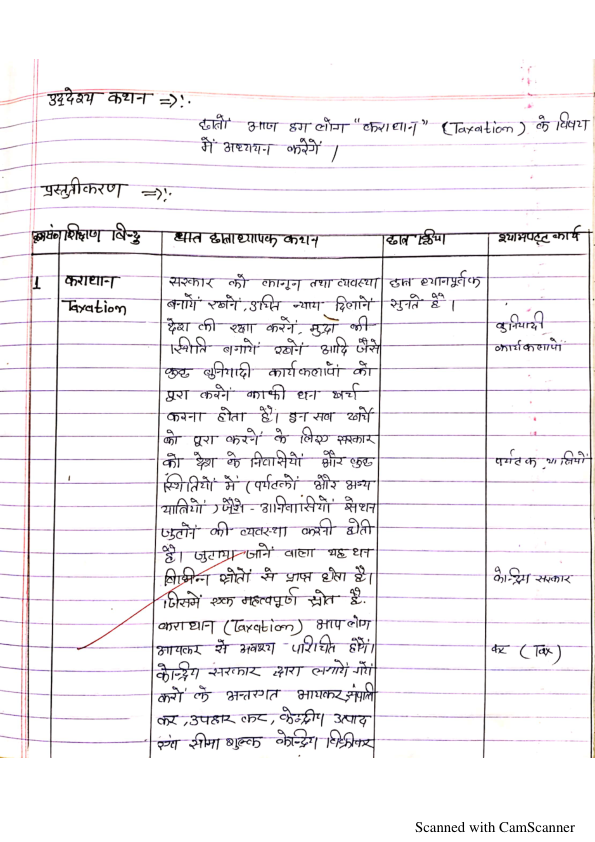 उद्देश्य कथन =>:-
छात्रों आज हम लोग "कराधान" (Taxation) के विषय
में अध्ययन करेंगें /
प्रस्तुतीकरण =>:-
शिक्षण बिन्दु
छात्राध्यापक कथन
छात्र क्रिया
श्यामपट्ट कार्य
1
कराधान
Taxation
सरकार को कानून तथा व्यवस्था
बनायें रखनें, उचित न्याय दिलाने
देश की रक्षा करनें, मुद्रा की
स्थिति बनायें रखनें आदि जैसे
कुछ बुनियादी कार्यकलापों को
पूरा करनें काफी धन खर्च
करना होता है। इन सब खर्चे
को पूरा करनें के लिए सरकार
को देश के निवासियों और कुछ
स्थितियों में (पर्यटकों और अन्य
यात्रियों) जैसे - अनिवासियों से धन
जुटानें की व्यवस्था करनी होती
है। जुटाया जानें वाला यह धन
विभिन्न स्रोतों से प्राप्त होता है।
जिसमें एक महत्वपूर्ण स्रोत है.
कराधान (Taxation) आप लोग
आयकर से अवश्य परिचित होंगें।
केन्द्रीय सरकार द्वारा लगायें गयें
करों के अन्तरगत आयकर, संपत्ति
कर, उपहार कर, केन्द्रीय उत्पाद
एवं सीमा शुल्क केन्द्रिय बिक्रीकर
छात्र ध्यानपूर्वक
सुनते हैं।
बुनियादी
कार्यकलापों
पर्यटक, यात्रियों
केन्द्रिय सरकार
कर (Tax)
Scanned with CamScanner